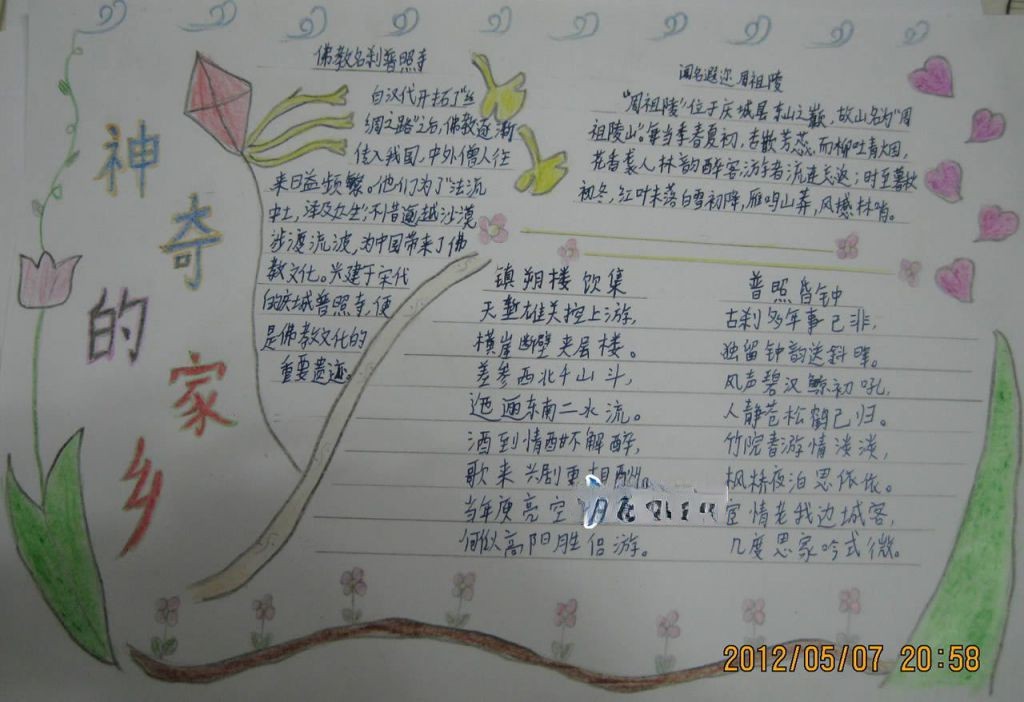 神奇的家乡
佛教名刹普照寺
自汉代开拓了“丝
绸之路”之后,佛教逐渐
传入我国,中外僧人往
来日益频繁。他们为了“法流
中土,泽及众生”,不惜逾越沙漠
涉渡流波,为中国带来了佛
教文化。兴建于宋代
的庆城普照寺,便
是佛教文化的
重要遗迹。
闻名遐迩周祖陵
“周祖陵”位于庆城县东山之巅,故山名为“周
祖陵山”。每当季春夏初,杏散芳蕊,而柳吐青烟,
花香袭人,林韵醉客,游者流连忘返;时至暮秋
初冬,红叶未落白雪初降,雁鸣山莽,风撼林哨。
镇朔楼饮集
天堑雄关控上游,
横崖断壁夹层楼。
差参西北千山斗,
迤逦东南二水流。
酒到情酣不解醉,
歌来兴剧更相酬。
当年庾亮空
何似高阳胜侣游。
普照昏钟
古刹多年事已非,
独留钟韵送斜晖。
风声碧汉鲸初吼,
人静苍松鹤已归。
竹院春游情淡淡,
枫桥夜泊思依依。
宦情老我边城客,
几度思家吟式微。
2012/05/07 20:58